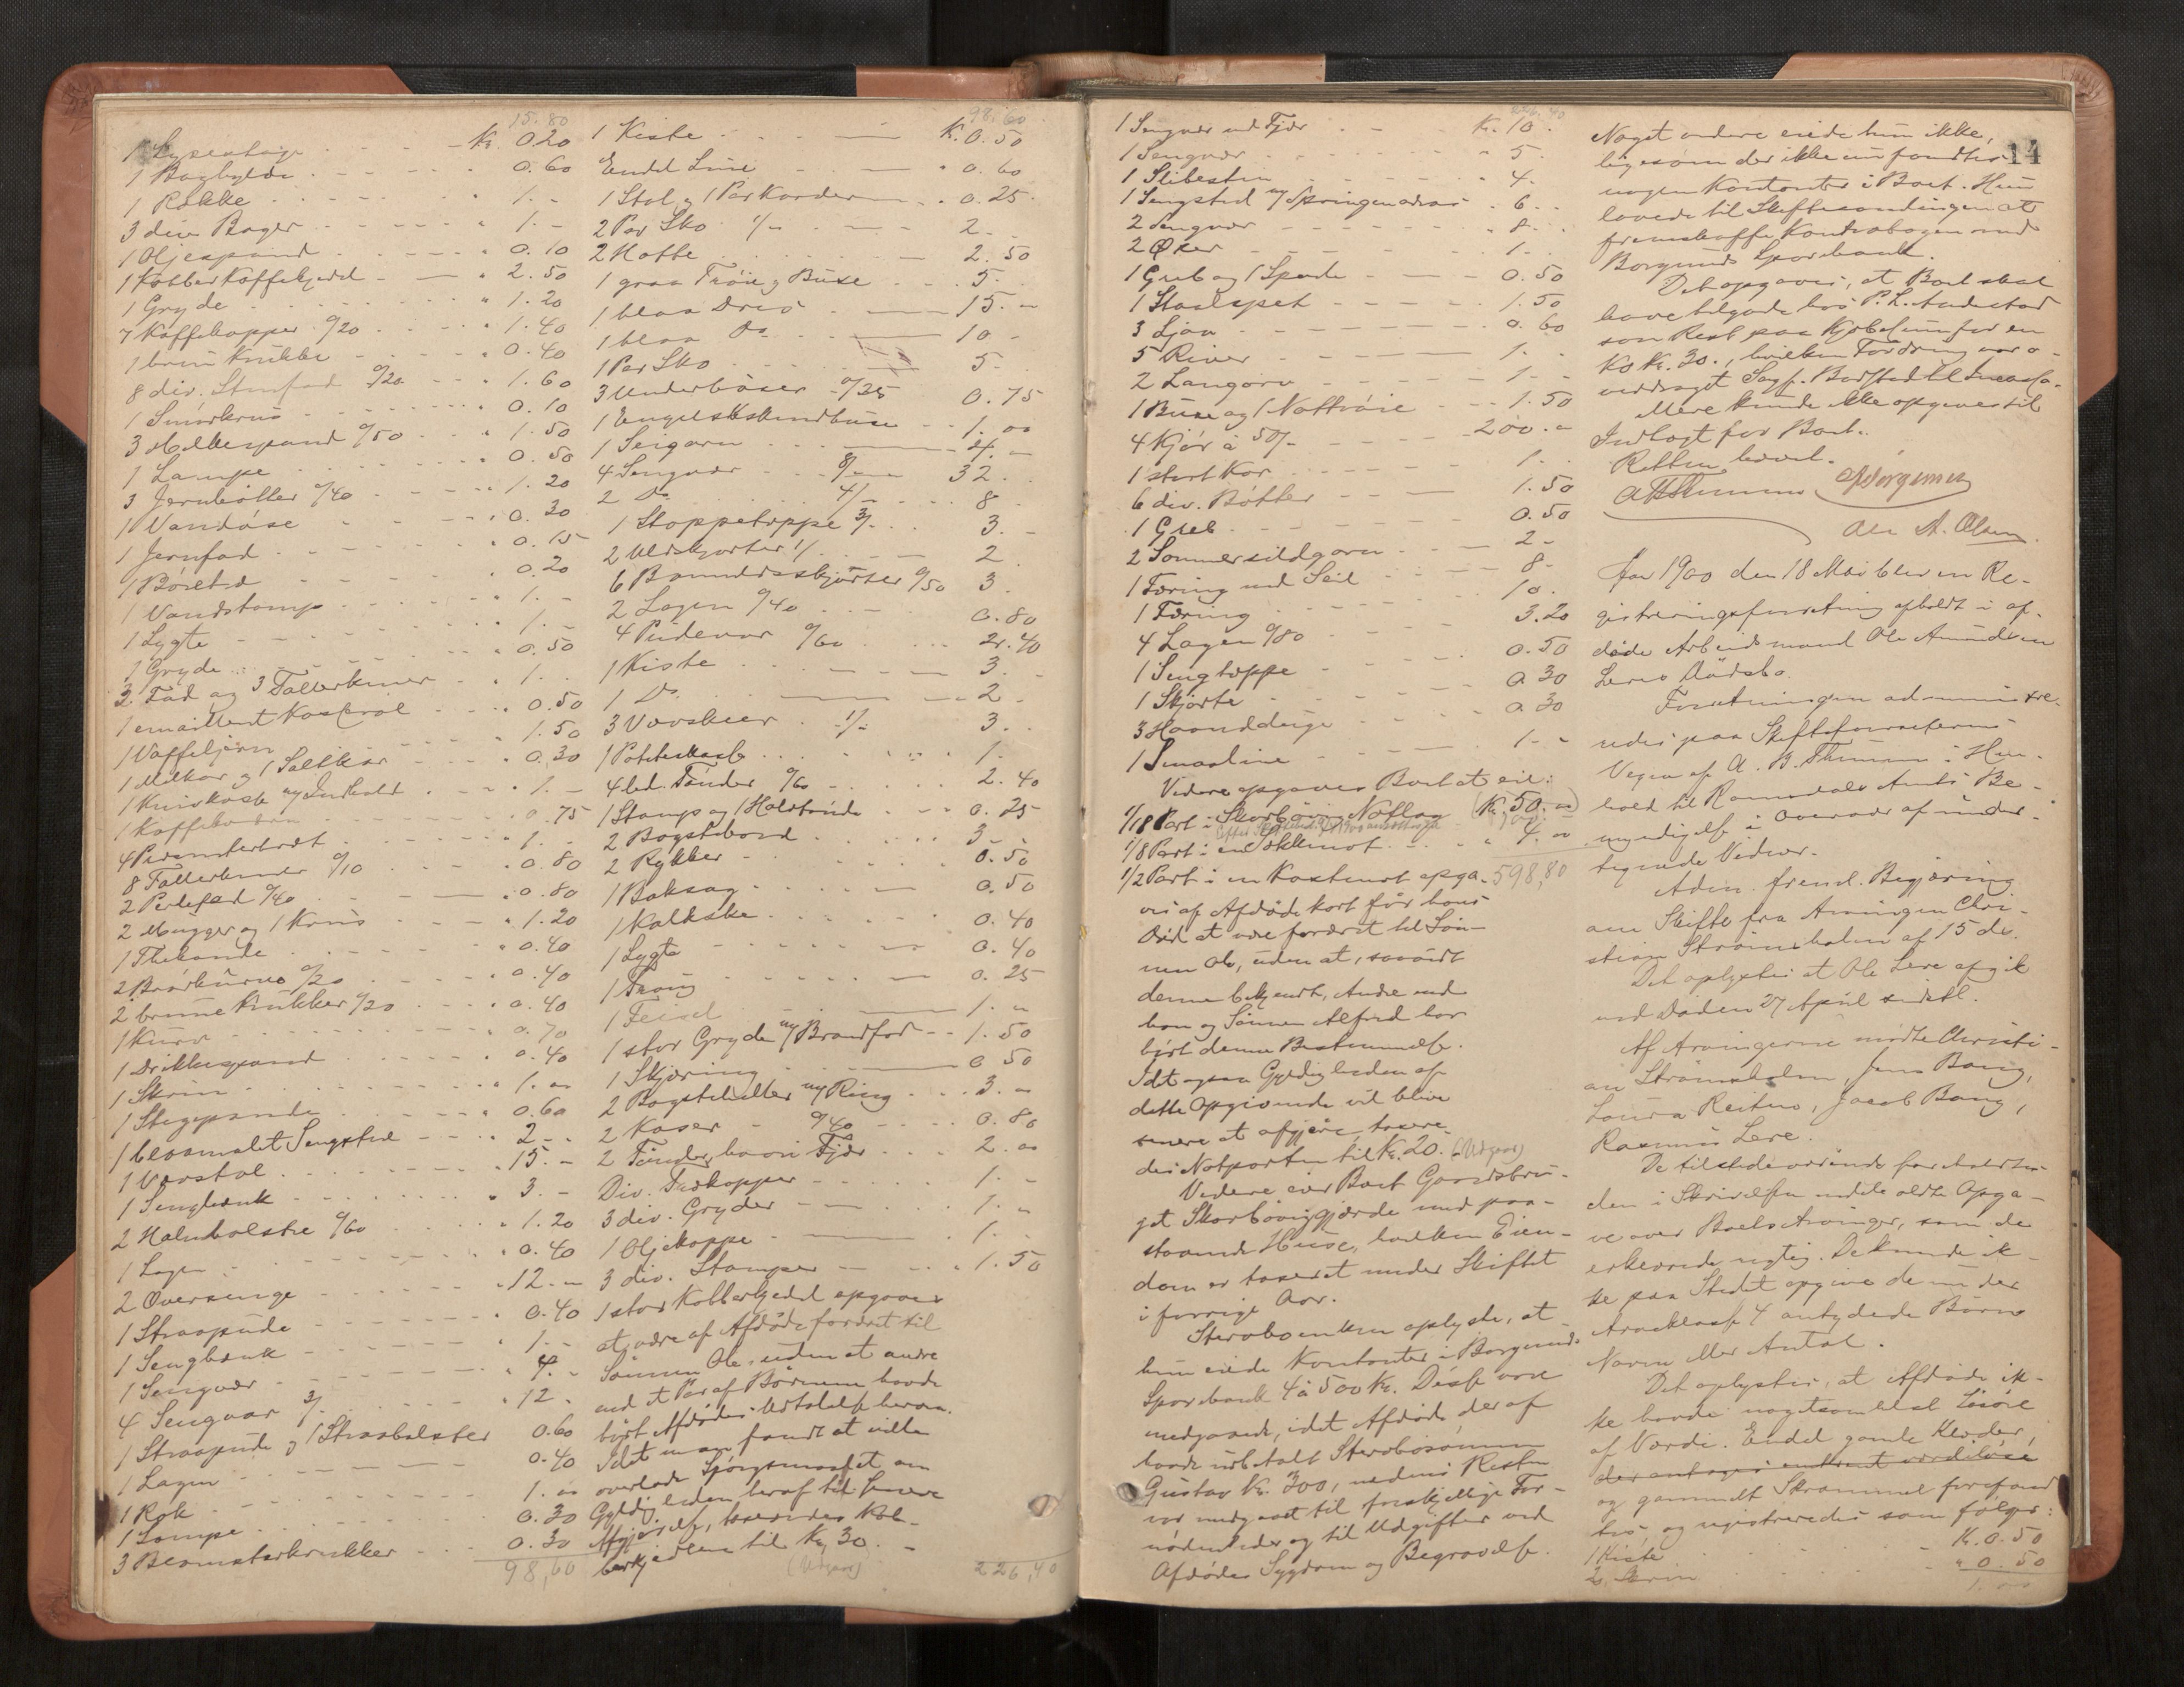 15.80
1 Lysestage Kr. 0.20
1 Baghylde 0.60
1 Rokke 1. -
3 div. Bøger 1. -
1 Oljespand 0.10
1 Kobber Kaffekjedel 2.50
1 Gryde 1.20
7 Kaffekopper 0/20 1.40
1 brun Krukke 0.40
8 div. Stenfad 0/20 1.60
1 Smørkrus 0.10
3 Melkespand 0/50 1.50
1 Lampe 0.50
3 Jernbøtter 0/40 1.20
1 Vandøse 0.30
1 Jernfad 0.15
1 Børetræ 0.20
1 Vandstamp 1. -
1 Lygte 1. -
1 Gryde 0.50
2 Fad og 3 Tallerkener 1. -
1 emailleret Kasserol 0.50
1 Vaffeljern 1.50
1 Melkar og 1 Saltkar 0.30
1 Knivkasse m/ Indhold 1. -
1 Kaffebrænder 0.75
4 1. -
8 Tallerkener 0/10 0.80
2 Perlefad 0/40 0.80
2 Mugger og 1 Krus 1.20
1 Thekande 0.40
2 Brødkurve 0/20 0.40
2 brune Krukker 0/20 0.40
1 Kurv 0.70
1 Drikkespand 0.40
1 Skrin 1. -
1 Stegepande 0.60
1 blaamalet Sengsted 2. -
1 Vævstol 15. -
1 Sengbænk 3. -
2 Halmbolstre 0/60 1.20
1 Lagen 0.40
2 Oversenge 12. -
1 Straapude 0.40
1 Sengbænk 1. -
1 Sengvær 4. -
4 Sengvær 3/ 12. -
1 Straapude og 1 Straabolster 0.60
1 Lagen 0.40
1 Rok 1. -
1 Lampe 0.30
3 Blomsterkrukker 0.30
98,60
98.60
1 Kiste Kr. 0.50
Endel Line 0.60
1 Stol og 1 Par Karder 0.25
2 Par Sko 1/- 2. -
2 Hatte 2.50
1 graa Trøie og Buxe 5. -
1 blaa Dres 15. -
1 blaa Do 10 -
1 Par Sko 5. -
3 Underbuxer 0/25 0.75
1 Engelskskindbuxe 1. 00
1 Seigarn 4. -
4 Sengvær 8/- 32. -
2 Do 4/- 8
1 Stoppetæppe 3/- 3. -
2 Uldskjorter 1/- 2
6 Bomuldsskjorter 0/50 3
2 Lagen 0/40 0.80
4 Pudevar 0/60 2.40
1 Kiste 3. -
1 Do 2 -
3 Vævskeer 1/- 3.
1 1. -
4 led. Tønder 0/60 2.40
1 Stamp og 1 Halvtønde 0.25
2 Bagstebord 3 -
2 Rykker 0.50
1 Baksag 0.50
1 Kalkske 0.40
1 Lygte 0.40
1 Traug 0.25
1 Feisel 1. -
1 stor Gryde m/ Brandfod 1.50
1 Skjæring 0 50
2 Bagsteheller m/ Ring 3. -
2 Kaser 0/40 0.80
2 Tønder, hvori Fjær 2. 00
Div. Trækopper 1. -
3 div. Gryder 1. -
1 Oljekappe 1. -
3 div. Stamper 1.50
1 stor Kobberkjedel opgaves
at være af Afdøde foræret til
Sønnen Ole, uden at andre
end et Par af Børnene havde
hørt Afdødes Udtalelse herom.
Idet man fandt at ville
overlade Spørgsmaalet om
Gyldigheden heraf til senere
Afgjørelse, taxeredes Kob-
berkjedlen til Kr. 30. -
(Udgaar) 226,40
1 Sengvær med Fjær Kr. 10.
1 Sengvær 5.
1 Slibesten 4.
1 Sengsted m/ Springmadras 6. -
2 Sengvær 8. -
2 Øxer 1. -
1 Greb og 1 Spade 0.50
1 Staalspet 1.50
3 Ljaa 0.60
5 River 1. -
2 Langorv 1. -
1 Buxe og 1 Nattrøie 1.50
4 Kjør à 50/- 200. -
1 stort Kar 1. -
6 div. Bøtter 1.50
1 Greb 0.50
2 Sommersildgarn 2 -
1 Færing med Seil 8 -
1 Færing 10. -
4 Lagen 0/80 3.20
1 Sengtæppe 0.50
1 Skjorte 0.30
3 Haandduge 0.30
1 Smaaline 1. -
Videre opgaves Boet at eie:
1/18 Part i Skorbøvig Notlag (Kr. 50. -)
1/8 Part i en 4. 00
1/2 Part i en Kastenot opga- 598,80
ves af Afdøde kort før hans
Død at være foræret til Søn-
nen Ole, uden at, saavidt
denne bekjendt, Andre end
han og Sønnen Alfred har
hørt denne Bestemmelse.
Idet ogsaa Gyldigheden af
dette Opgivende vil blive
senere at afgjøre, taxere-
des Notparten til Kr. 20. - (Udgaar)
Videre eier Boet Gaardsbru-
get Skorbøviggjærde med paa-
staaende Huse, hvilken Eien-
dom er taxeret under Skiftet
i forrige Aar.
Stervboenken oplyste, at
hun eiede Kontanter i Borgunds
Sparebank 4 à 500 Kr. Disse vare
medgaaede, idet Afdøde deraf
havde udbetalt Stervbosønnen
Gustav Kr. 300, medens Resten
var medgaaet til forskjellige For-
nødenheder og til Udgifter ved
Afdødes Sygdom og Begravelse.
14
Noget andere eiede hun ikke,
ligesom der ikke nu fandtes
nogen Kontanter i Boet. Hun
lovede til Skiftesamlingen at
fremskaffe Kontrabogen med
Borgunds Sparebank.
Det opgaves, at Boet skal
have tilgode hos P. L. Aadestad
som Rest paa Kjøbesum for en
Ko Kr. 30. -, hvilken Fordring var o-
verdraget Sagf. Barstad til Incasso.
Mere kunde ikke opgives til
Indtægt for Boet.
Retten hævet.
Ole A. Olsen.
Aar 1900 den 18 Mai blev en Re-
gistreringsforretning afholdt i af-
døde Arbeidsmand Ole Amundsen
Leres Dødsbo.
Forretningen administre-
redes paa Skifteforvalterens
Vegne af A. B. Thunem i Hen-
hold til Romsdals Amts Be-
myndigelse i Overvær af under-
tegnede Vidner.
Adm. freml. Begjæring
om Skifte fra Arvingen Chri-
stian Strømsholm af 15 ds.
Det oplystes at Ole Lere afgik
ved Døden 27 April sidstl.
Af Arvingerne mødte Christi-
an Strømsholm, Jens Bang,
Laura Reiten, Jacob Bang,
Rasmus Lere.
De tilstedeværende foreholdtes
den i Skrivelsen meddelte Opga-
ve over Boets Arvinger, som de
erkjendte rigtig. De kunde ik-
ke paa Stedet opgive de under
Arveklasse 4 antydede Børns
Navne eller Antal.
Det oplystes, at Afdøde ik-
ke havde nogetsomhelst Løsøre
af Værdi. Endel gamle Klæder,
der antages omtrent værdiløse
og gammelt Skrammel forefand-
tes og registreredes som følger:
1 Kiste Kr. 0.50
2 Skrin " 0.50
1.00